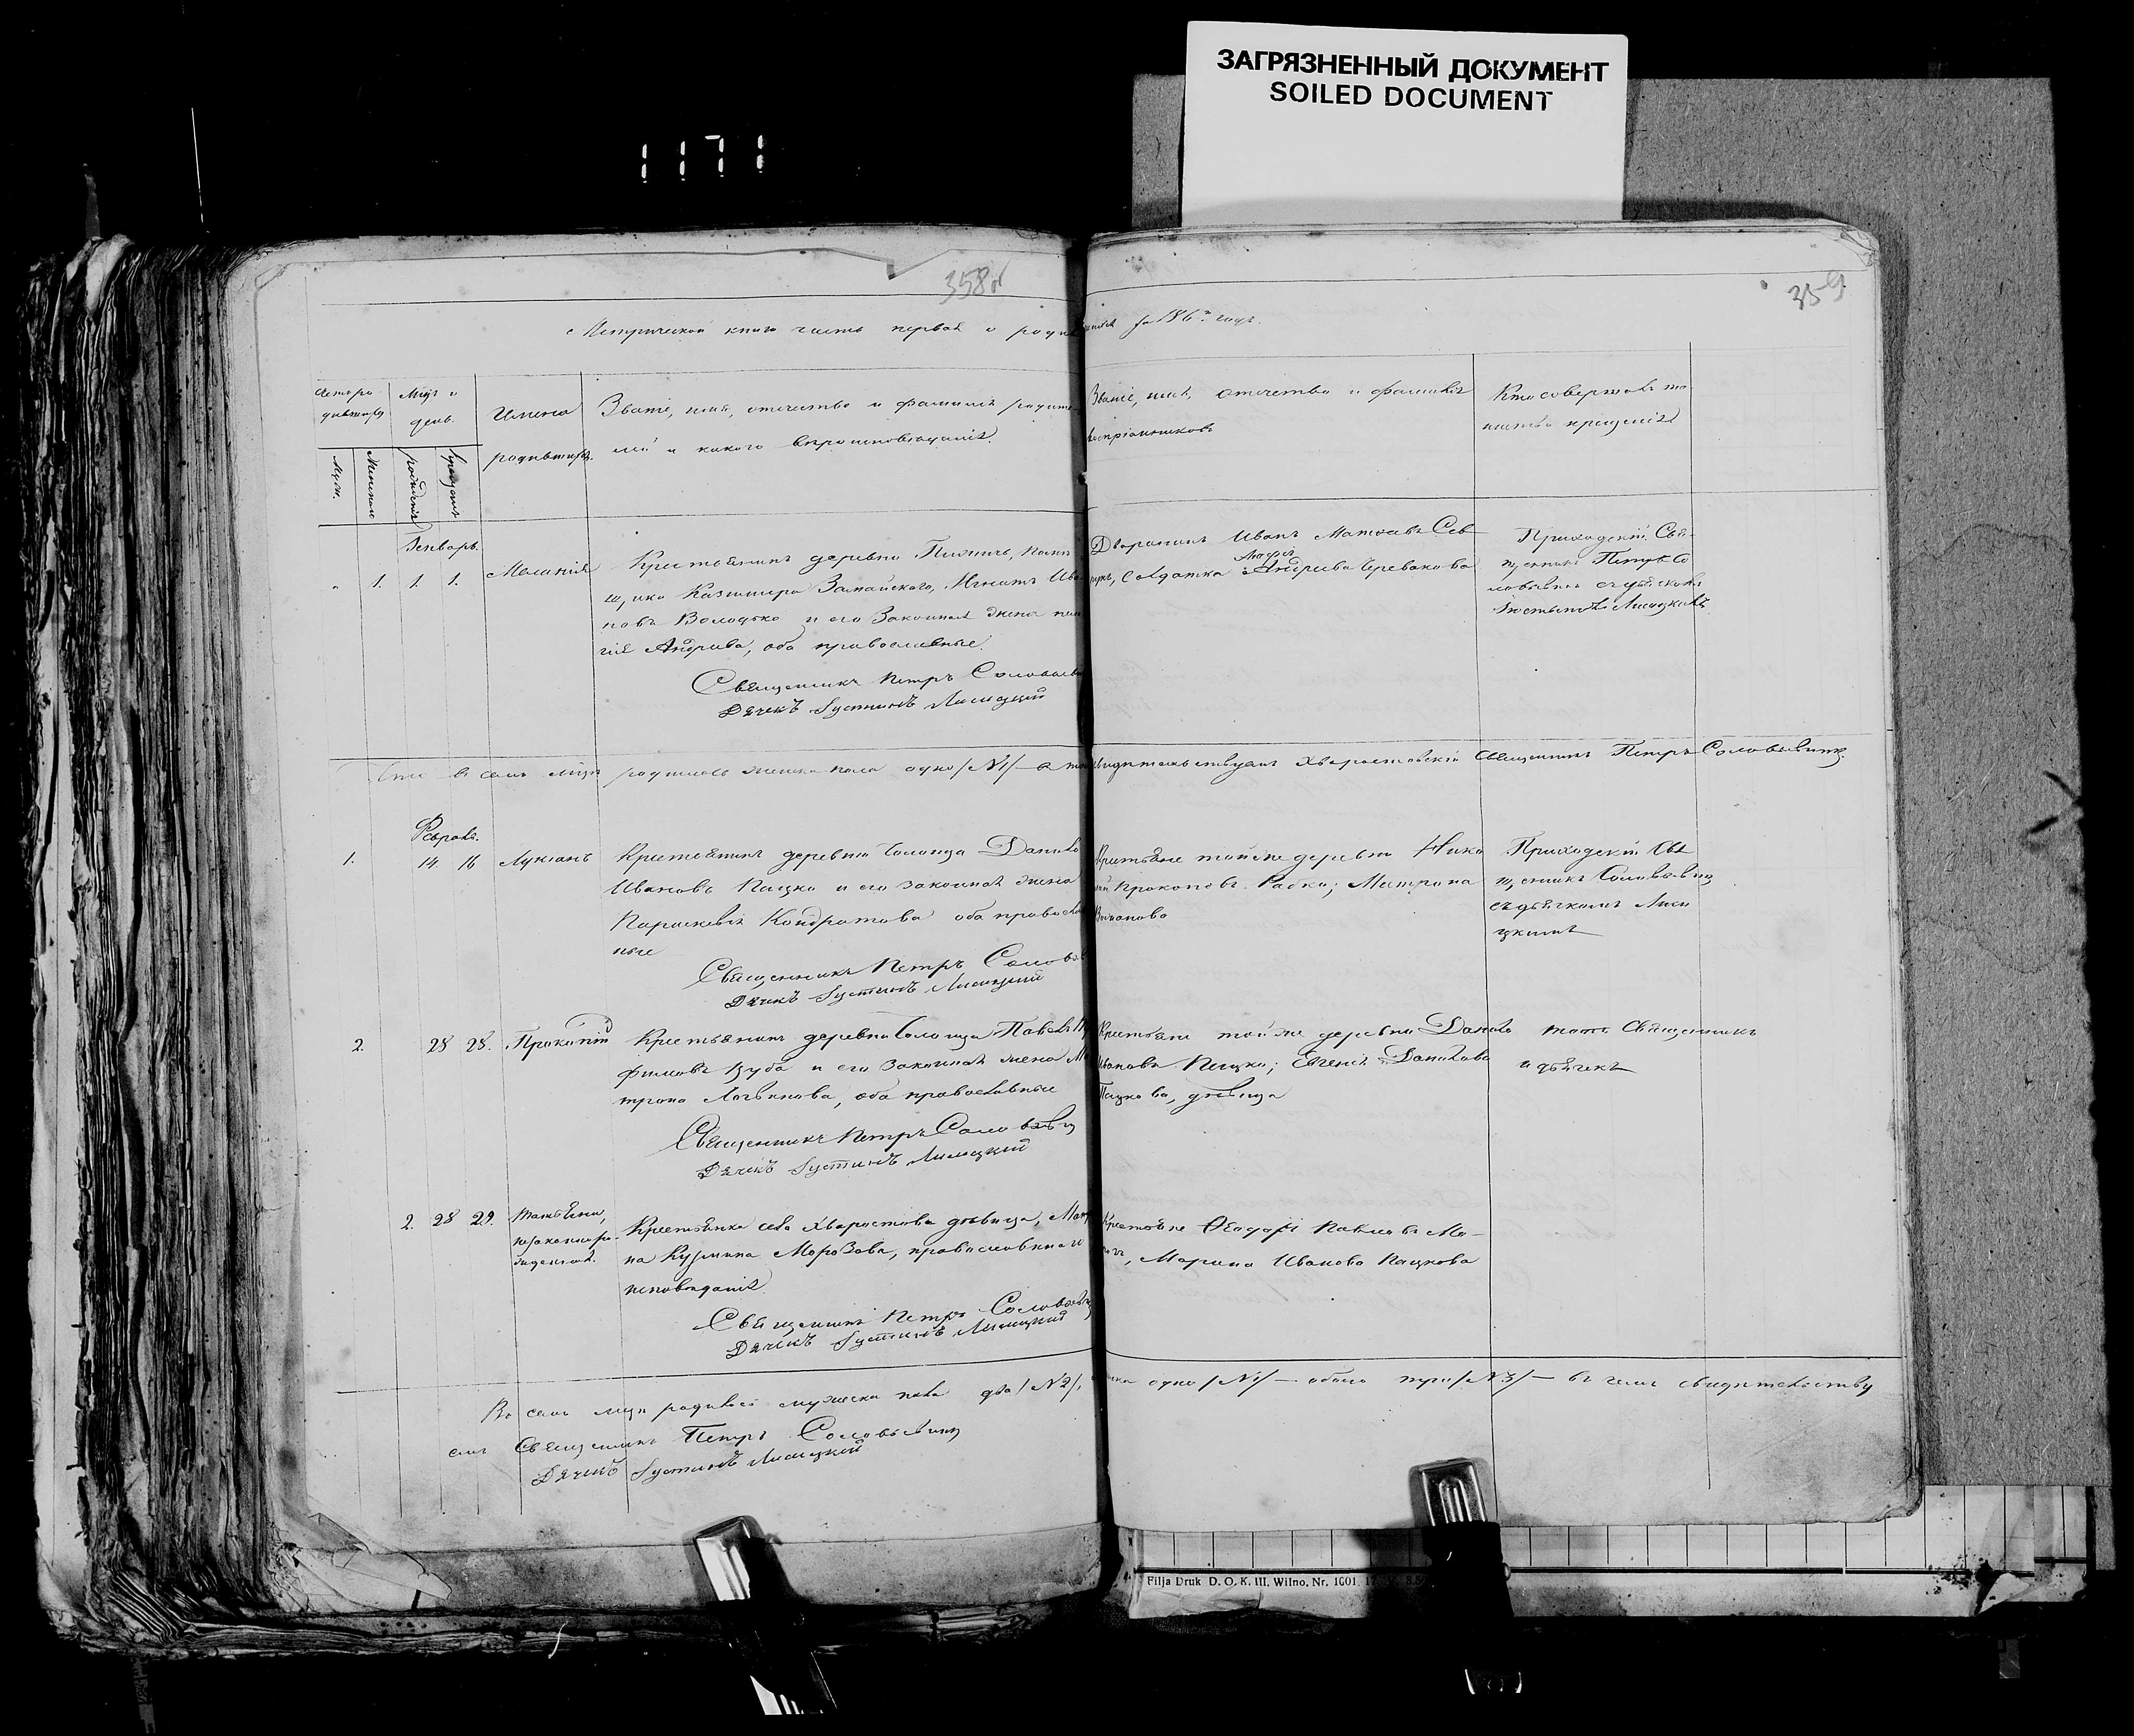 ЗАГРЯЗНЕННЫЙ ДОКУМЕНТ
SOILED DOCUMENT
1171
358
359
Метрической книги часть первая о родившихся за 186 годъ.
Имена
родившихъ.
Званіе, имя, отчество и фамилія родите-
лей и какого вѣроисповѣданія.
Званіе, имя, отчество и фамилія
воспріемниковъ
Кто совершалъ та-
инство крещенія
Муж.
Женскаго
рожденія
крещенія
Январь.
1. 1. 1.
Меланія
Крестьянинъ деревни
Казиміра Замайского, Игнатъ Ива-
новъ Володько и его законная жена
Андреева, оба православные.
Священникъ Петръ Соловьев
Дячекъ Іустинъ Лисицкий
Дворянинъ Иванъ
Солдатка Андреева
Приходскій Свя-
щенникъ Петръ Со
ловьевичъ съ дьячкомъ
Іюстыномъ Лисицкимъ
родилось женска пола одно /№1/ — свидѣтельствуетъ Хваростовскій Священникъ Петръ Соловьевичъ.
Февраль.
1. 14 16 Лукіанъ
Крестьянинъ деревни Солонца Данило
Ивановъ Пацко и его законная жена
Параскевія Кондратова оба православ
ные
Священникъ Петръ Соловьев
Дячекъ Іустинъ Лисицкий
Крестьяне той же деревни Нико
лай Прокоповъ Матрона
Приходскій Свя
щенникъ Соловьевич
съ дьячкомъ Лиси
цкимъ
2. 28 28. Прокопій
Крестьянинъ деревни Солонца Павелъ
фимовъ и его законная жена Ма
трона Логвинова, оба православные
Священникъ Петръ Соловьевич
Дячекъ Іустинъ Лисицкий
Крестьяне той же деревни Данило
Ивановъ Пацко; Евгенія Данилова
Пацкова, дѣвица
тотъ Священникъ
и дьячекъ
2. 28 29. Татьяна,
незаконоро-
жденная.
Крестьянка села Хваростова дѣвица, Матро
на Кузмина Морозова, православнаго
исповѣданія
Священникъ Петръ Соловьевич
Дячекъ Іустинъ Лисицкий
Крестьяне Ѳеодоръ Павловъ Мо-
розъ, Марина Иванова Пацкова
Въ семъ мцѣ родилось мужеска пола два /№2/, женска одно /№1/ — обоего три /№3/ — въ чемъ свидѣтельству
емъ Священникъ Петръ Соловьевичъ
Дячекъ Іустинъ Лисицкий
Filja Druk D. O. K. III. Wilno. Nr. 1001